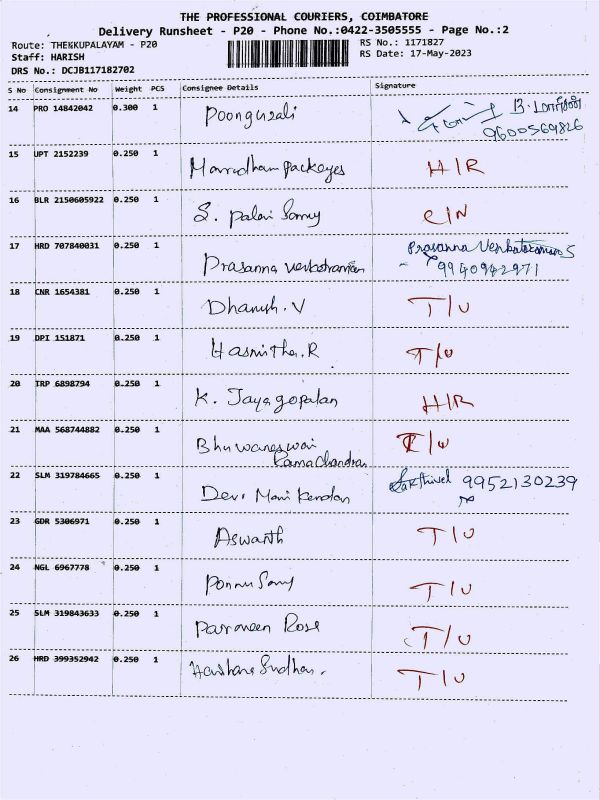 THE PROFESSIONAL COURIERS, COIMBATORE
Delivery Runsheet - P20 - Phone No.:0422-3505555 - Page No.:2
Route: THEKKUPALAYAM - P20
RS No.: 1171827
Staff: HARISH
RS Date: 17-May-2023
DRS No.: DCJB117182702
S No Consignment No Weight PCS Consignee Details Signature
14 PRO 14842042 0.300 1 Poonguzali B.
9600569826
15 UPT 2152239 0.250 1 H/R
16 BLR 2150605922 0.250 1 S. Palani Samy C/N
17 HRD 707840031 0.250 1 Prasanna Venkatraman Prasanna Venkataraman S
9940942971
18 CNR 1654381 0.250 1 Dhanush.V T/U
19 DPI 151871 0.250 1 Hasmitha.R T/U
20 TRP 6898794 0.250 1 K. Jayagopalan H/R
21 MAA 568744882 0.250 1 Bhuwaneswari T/U
Rama Chandran
22 SLM 319784665 0.250 1 Devi Mani Kandan Sakthivel 9952130239
23 GDR 5306971 0.250 1 Aswanth T/U
24 NGL 6967778 0.250 1 Ponnu Samy T/U
25 SLM 319843633 0.250 1 Parveen Rose T/U
26 HRD 399352942 0.250 1 T/U